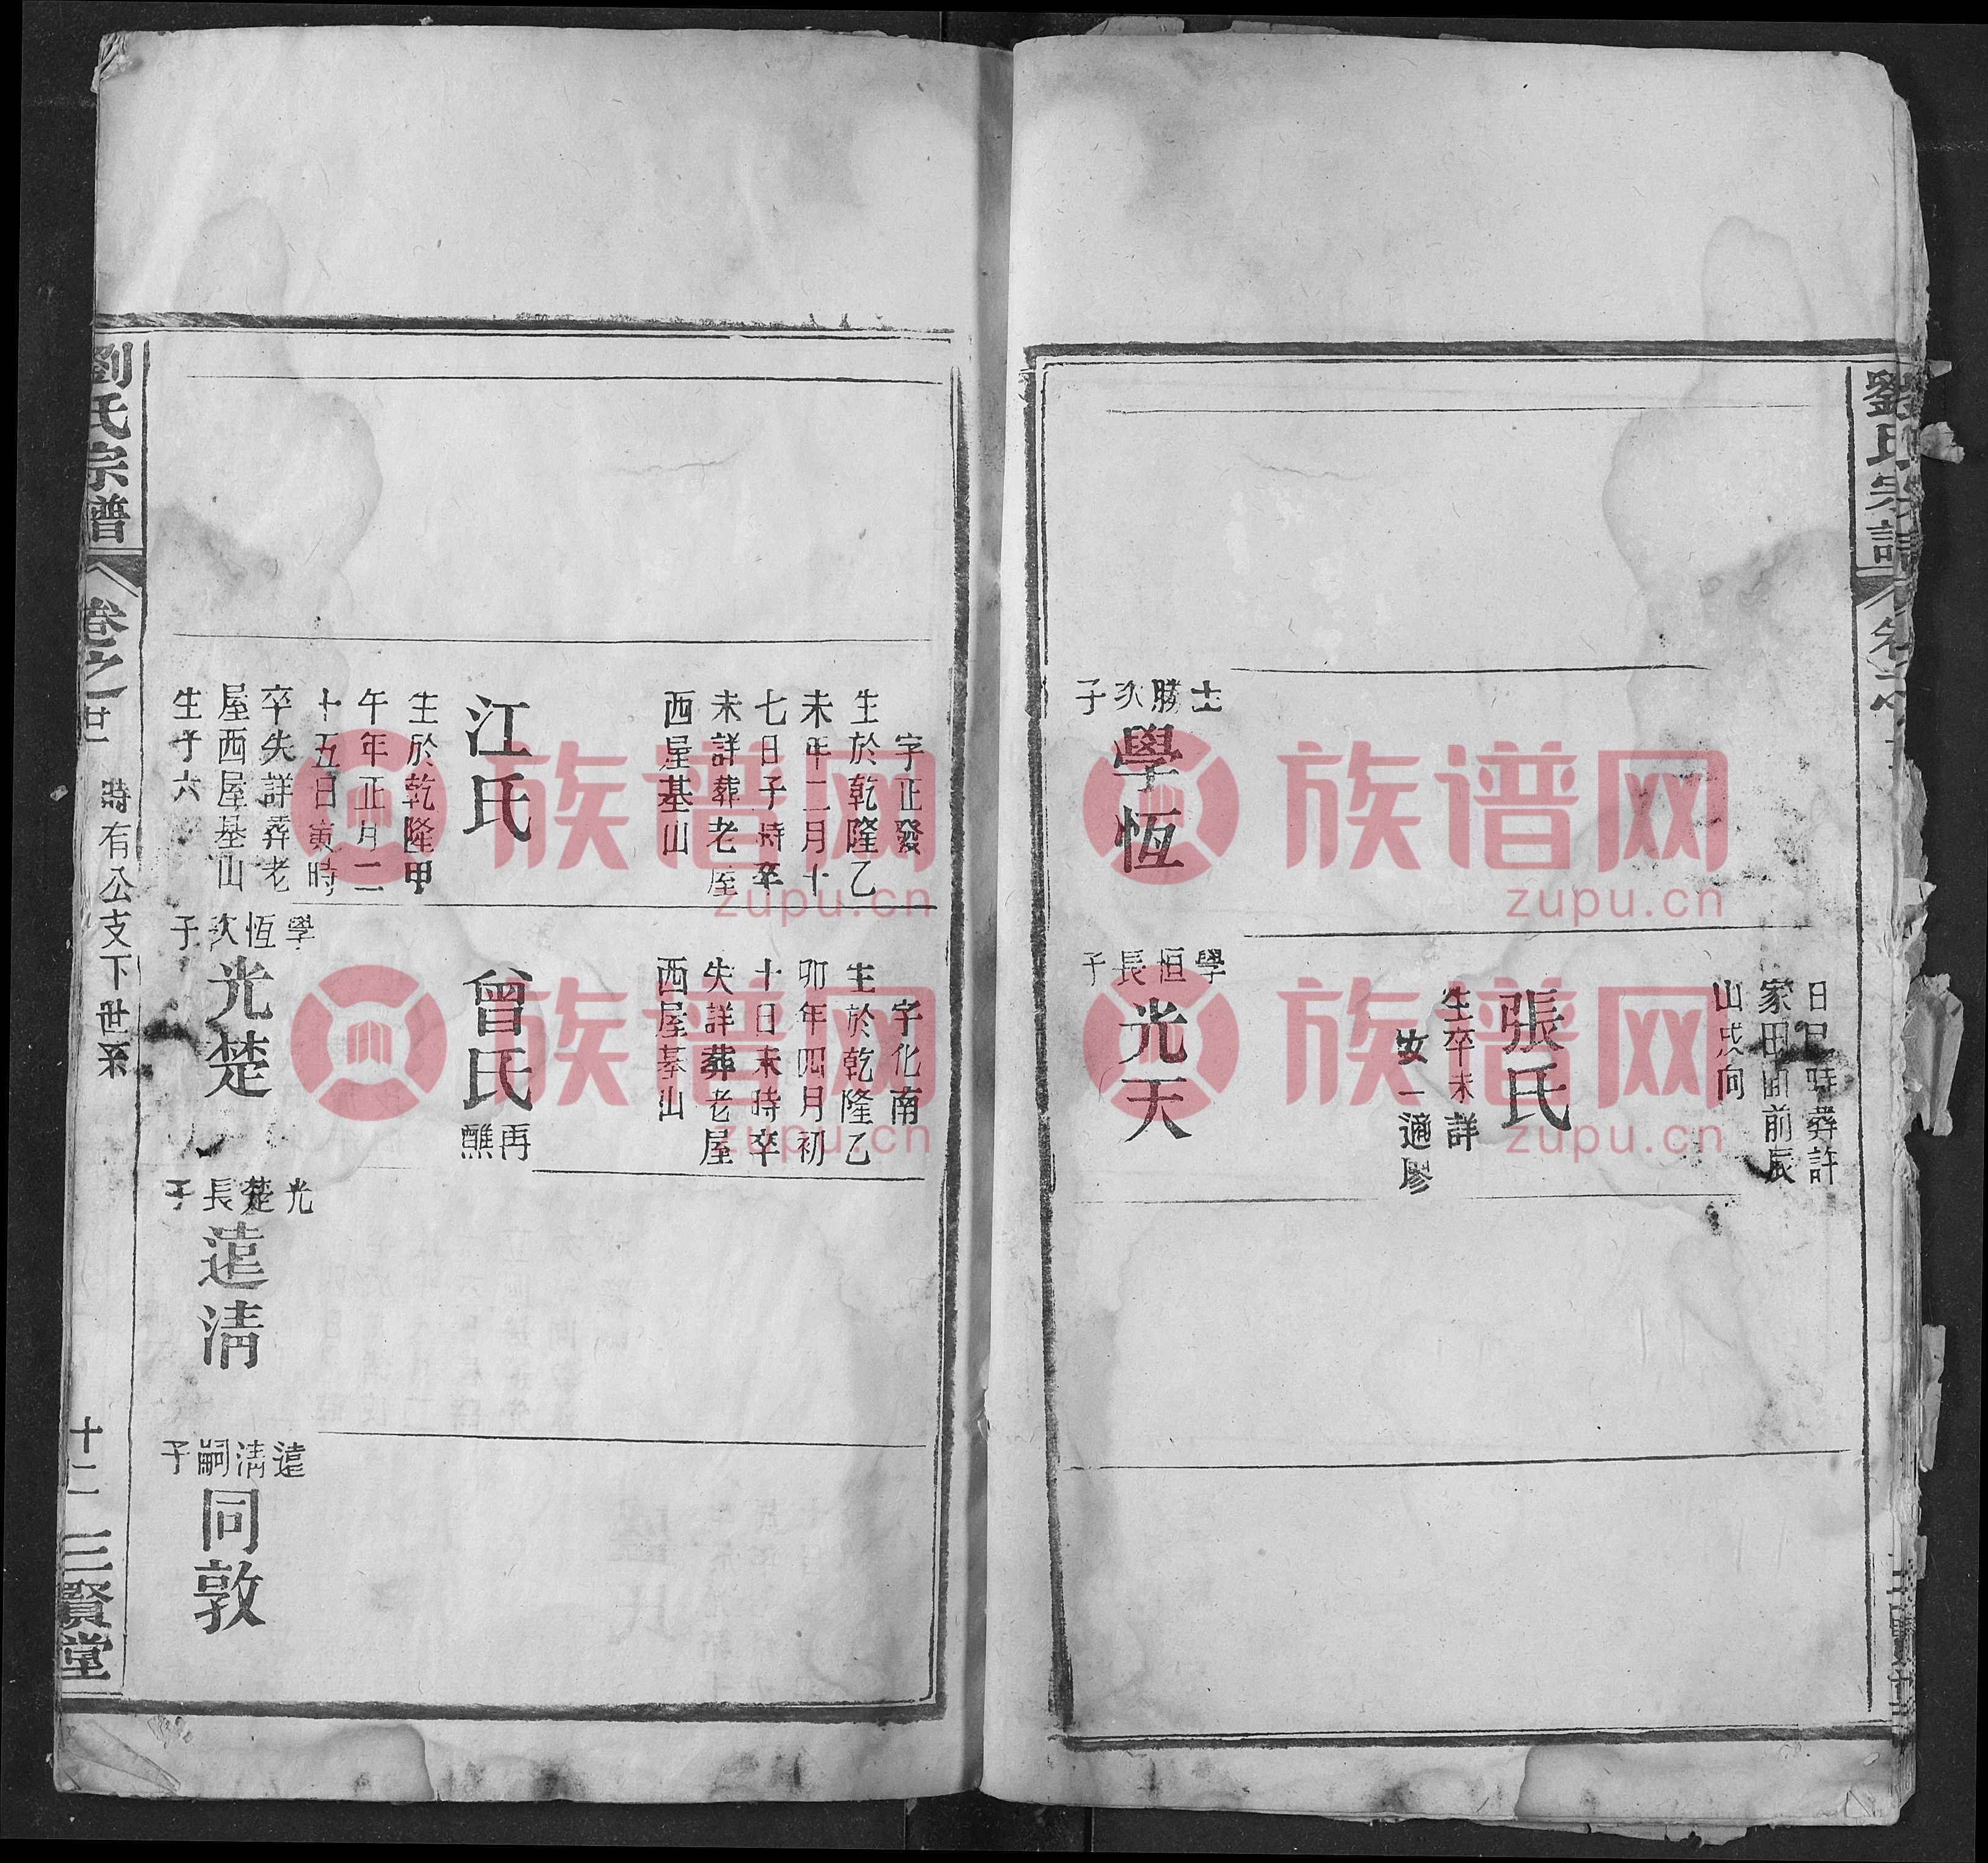 劉氏宗譜
士勝次子
學恆
日巳時葬許
家田面前辰
山戍向
張氏
生卒未詳
女一適廖
學恒長子
光天
字正發
生於乾隆乙
未年二月十
七日子時卒
未詳葬老屋
西屋基山
江氏
生於乾隆甲
午年正月二
十五日寅時
卒失詳葬老
屋西屋基山
生子六
字化南
生於乾隆乙
卯年四月初
十日未時卒
失詳葬老屋
西屋基山
曾氏
再醮
學恆次子
光楚
光楚長子
遠清
遠清嗣子
同敦
劉氏宗譜
卷之廿一
時有公支下世系
十二
三賢堂
族谱网
zupu.cn
族谱网
zupu.cn
族谱网
zupu.cn
族谱网
zupu.cn